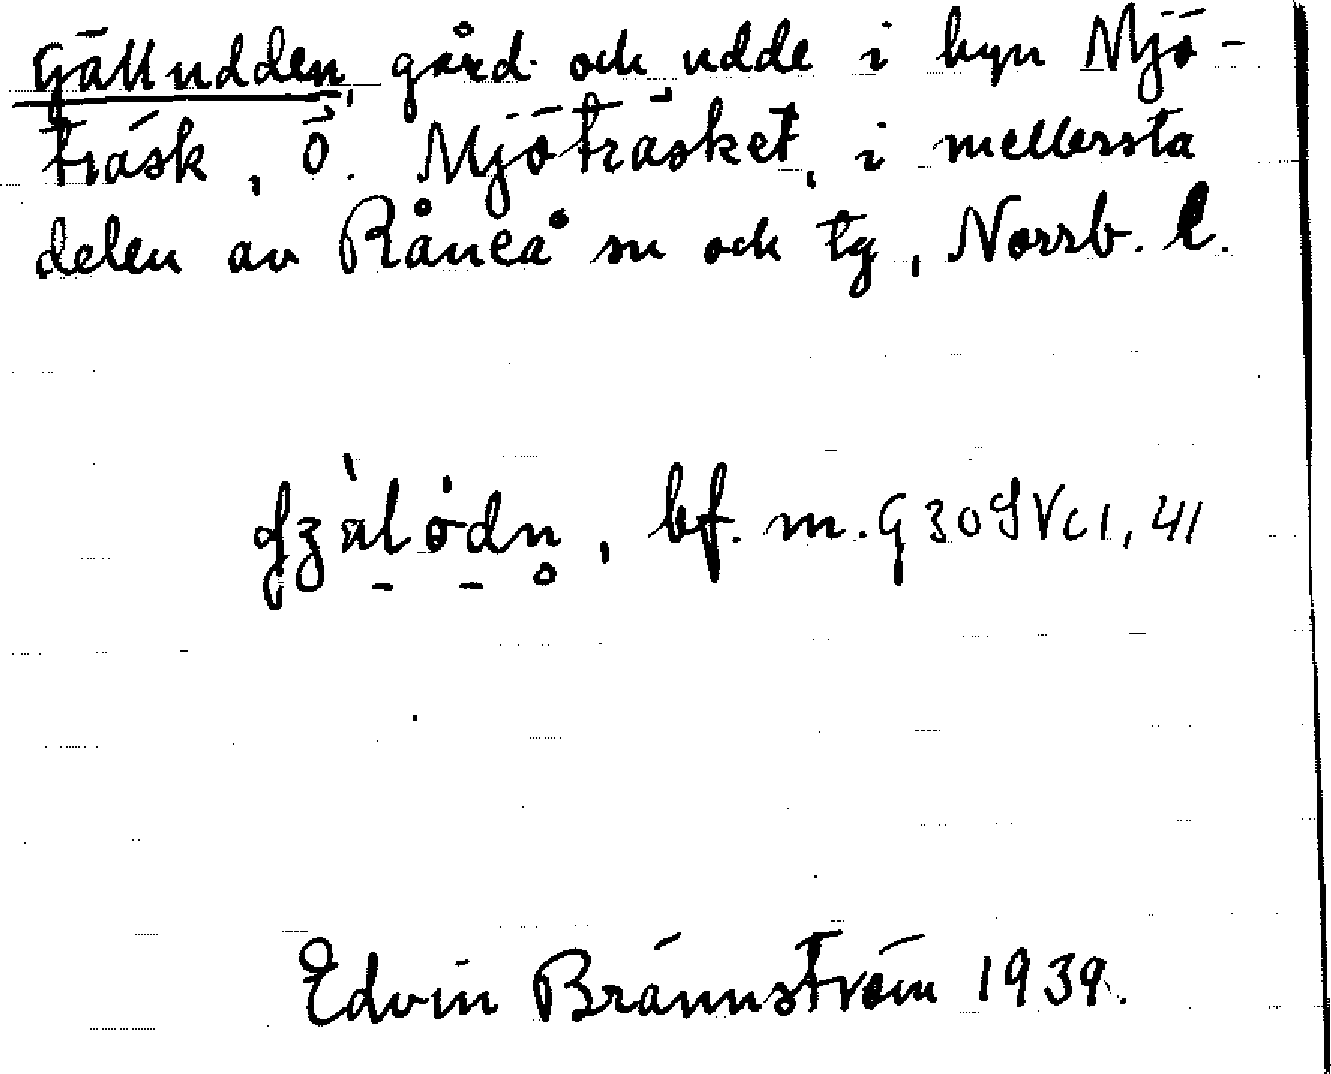 Gälludden, gård och udde i byn Mjö-
träsk, Ö. Mjöträsket, i mellersta
delen av Råneå sn och tg, Norrb. l.
bf. m. G 30 SV c 1, 41
Edvin Brännström 1939.